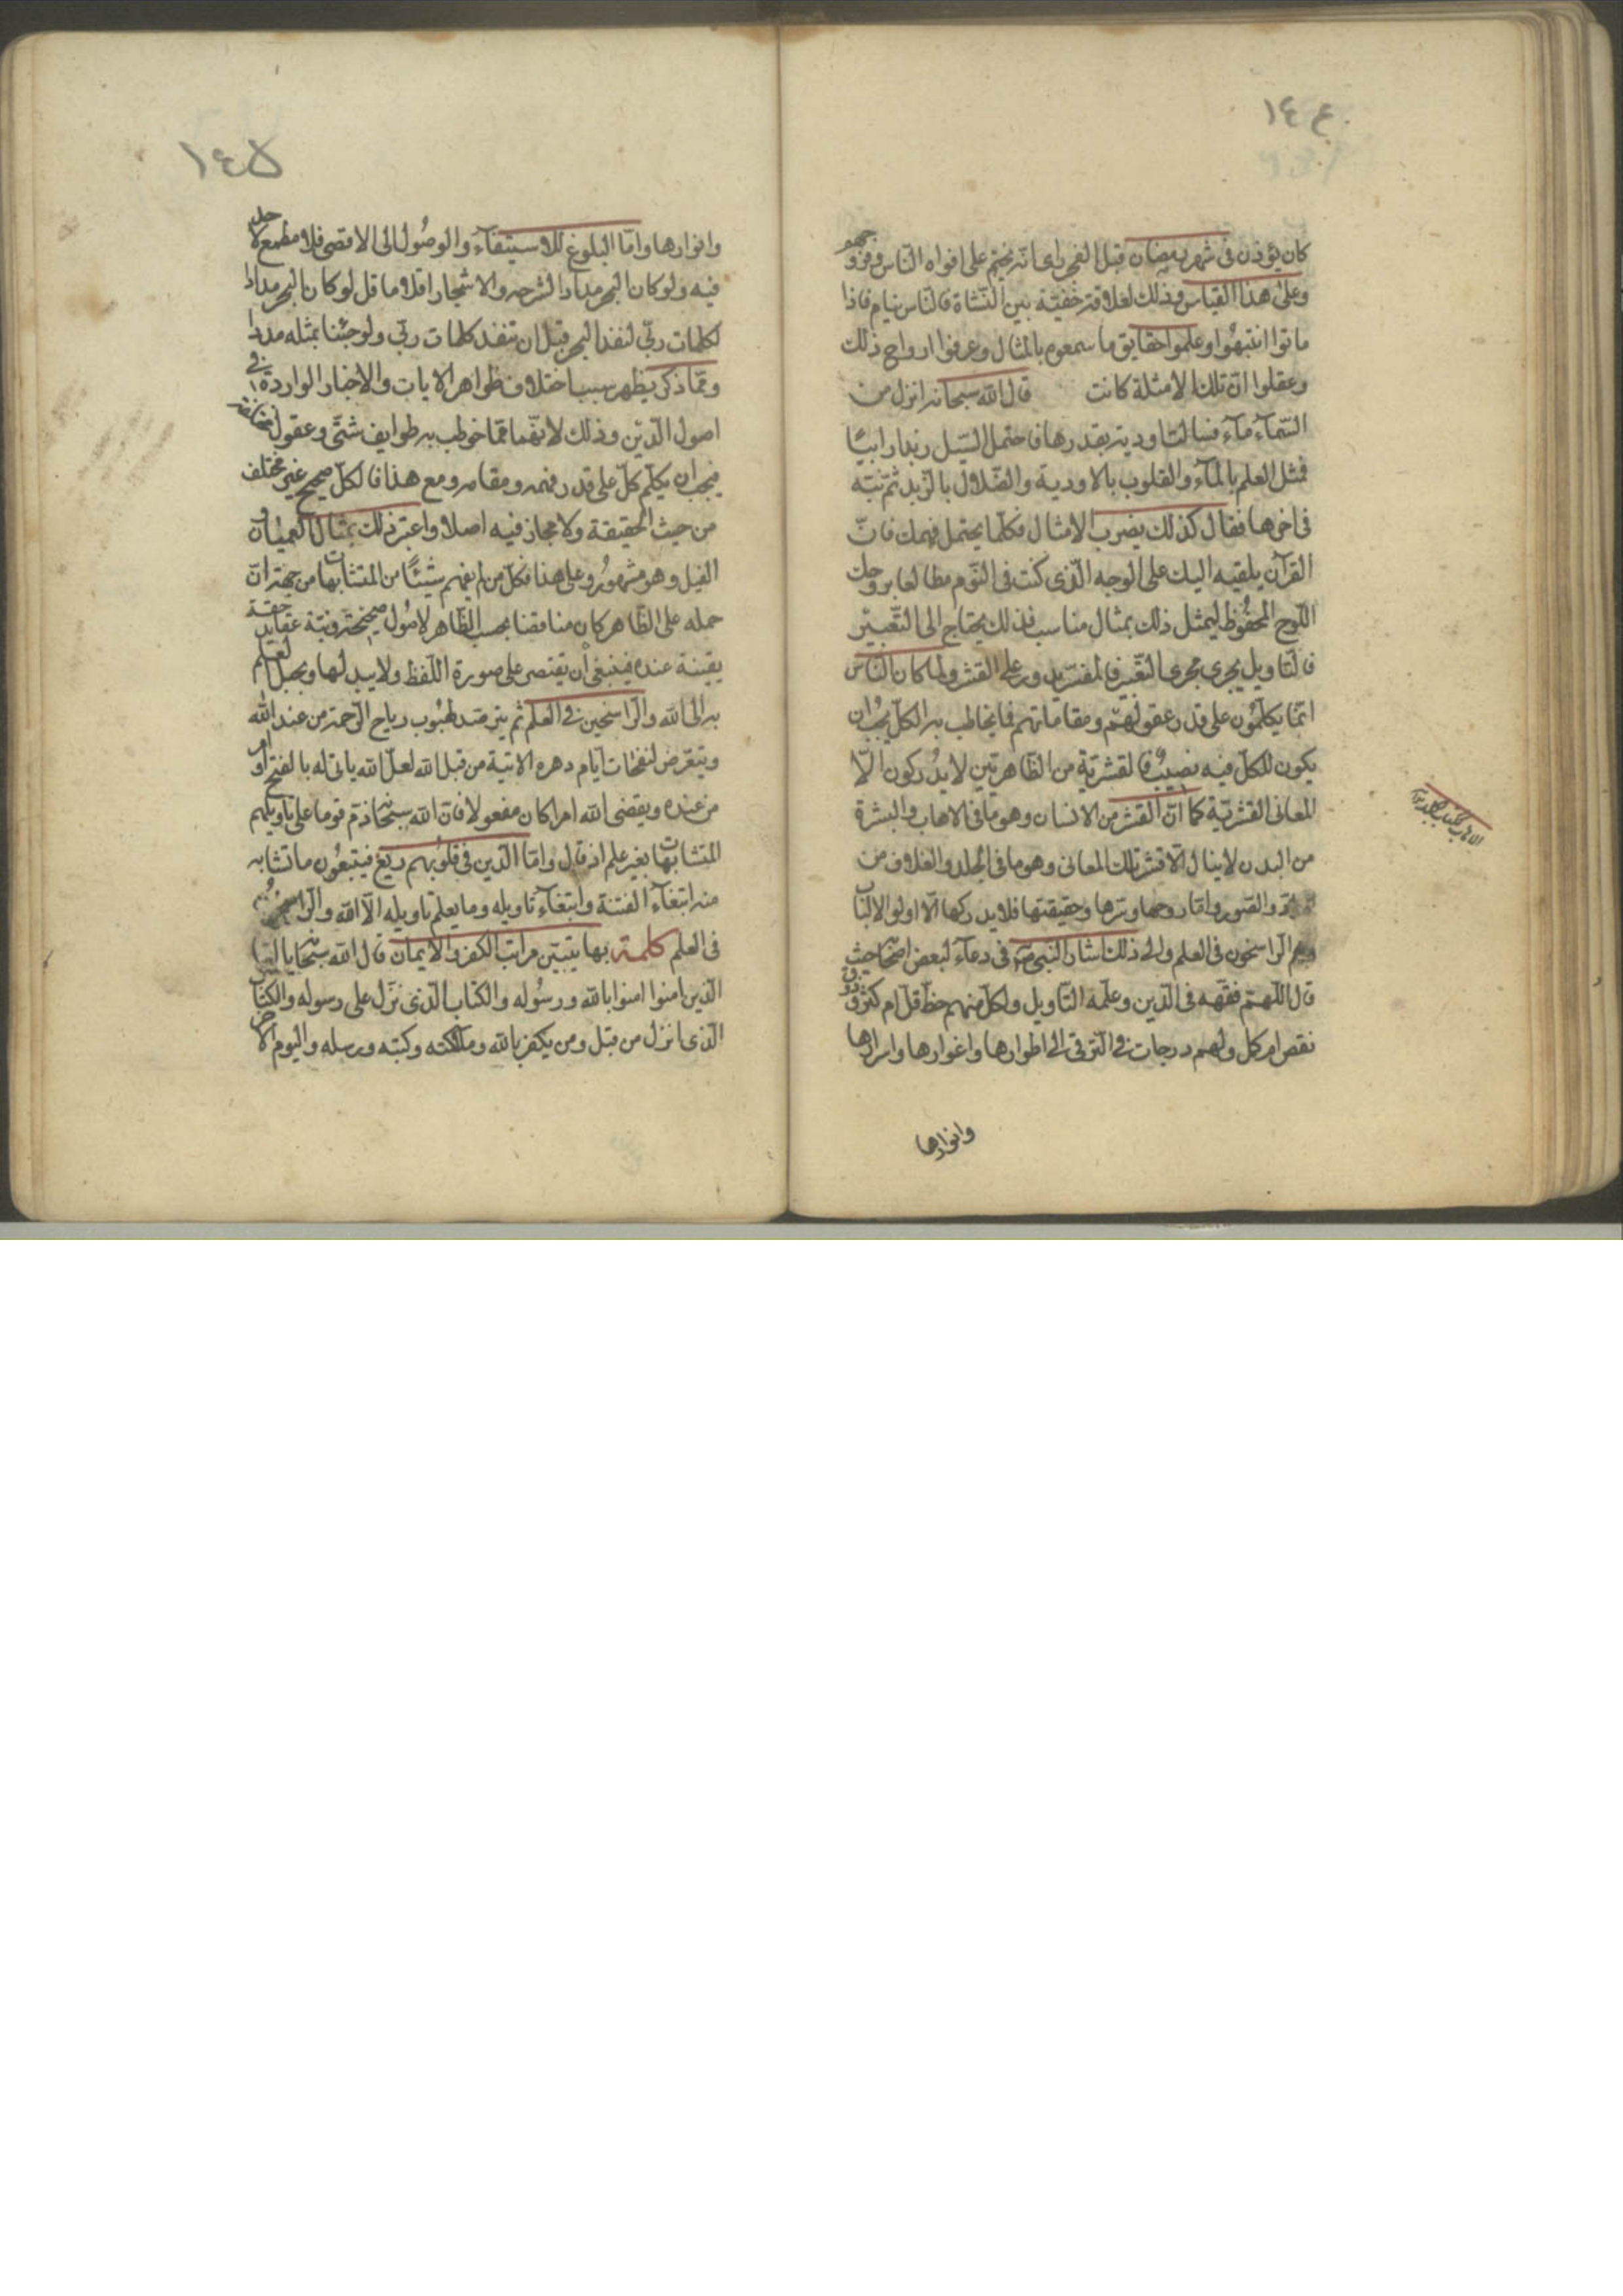 ١٤٠ع
كان يؤذن فى شهر رمضان قبل الفجر راى انه يختم على افواه النّاس وفروجهم
وعلى هذا القياس وذلك لعلاقة خفيّة بين النّشاة فالنّاس نيام فاذا
ماتوا انتبهوا وعلموا حقايق ما سمعوه بالمثال وعرفوا ارواح ذلك
وعقلوا انّ تلك الامثلة كانت قال الله سبحانه انزل من
السّمآء مآء فسالت اودية بقدرها فاحتمل السّيل زبدا رابيًا
فمثل العلم بالمآء والقلوب بالاودية والضّلال بالزّبد ثمّ نبّه
فى اخرها فقال كذلك يضرب الامثال فكلّما يحتمل فهمك فانّ
القرآن يلقيه اليك على الوجه الّذى كنت فى النّوم مطالعا بروحك
اللّوح المحفوظ ليمثل ذلك بمثال مناسب فذلك يحتاج الى التّعبير
فالتّاويل يجرى مجرى التّعبير فالمفسّر يدور على القشر ولما كان النّاس
انّما يكلّمون على قدر عقولهم ومقاماتهم فما يخاطب به الكلّ يجب ان
يكون للكلّ فيه نصيب فالقشريّة من الظّاهريّين لا يدركون الّا
المعانى القشريّة كما انّ القشر من الانسان وهو ما فى الاهاب والبشرة
من البدن لا ينال الّا قشر تلك المعانى وهو ما فى الجلد والغلاف من
والصّور وامّا روحها وسرّها وحقيقتها فلا يدركها الّا اولو الالباب
وهم الرّاسخون فى العلم والى ذلك اشار النّبى ص فى دعآء لبعض اصحابه حيث
قال اللّهمّ فقّهه فى الدّين وعلّمه التّاويل ولكلّ منهم حظّ قلّ ام كثر وذوق
نقص ام كمل ولهم درجات فى التّرقى الى اطوارها واغوارها واسرارها
وانوارها
١٤٥
وانوارها وامّا البلوغ للاستيفآء والوصول الى الاقصى فلا مطمع لاحد
فيه ولو كان البحر مدادا لشرحه والاشجار اقلاما قل لو كان البحر مدادا
لكلمات ربّى لنفد البحر قبل ان تنفد كلمات ربّى ولو جئنا بمثله مددا
وممّا ذكر يظهر سبب اختلاف ظواهر الايات والاخبار الواردة فى
اصول الدّين وذلك لانّها ممّا خوطب به طوايف شتّى وعقول مختلفة
فيجب ان يكلّم كلّ على قدر فهمه ومقامه ومع هذا فالكلّ صحيح غير مختلف
من حيث الحقيقة ولا مجاز فيه اصلا واعتبر ذلك بمثال العميان و
الفيل وهو مشهور وعلى هذا فكلّ من لم يفهم شيئًا من المتشابهات من جهة انّ
حمله على الظّاهر كان مناقضا بحسب الظّاهر لاصول صحيحة دينيّة وعقايد حقّة
يقينية عنده فينبغى ان يقتصر على صورة اللّفظ ولا يبدلها ويحيل العلم
به الى الله والرّاسخين فى العلم ثم يترصّد لهبوب رياح الرّحمة من عند الله
ويتعرّض لنفحات ايّام دهره الاتية من قبل الله لعلّ الله ياتى له بالفتح او امر
من عنده ويقضى الله امرا كان مفعولا فانّ الله سبحانه ذمّ قوما على تاويلهم
المتشابهات بغير علم اذ قال وامّا الّذين فى قلوبهم زيغ فيتّبعون ما تشابه
منه ابتغآء الفتنة وابتغآء تاويله وما يعلم تاويله الّا الله والرّاسخون
فى العلم كلمة بها يتبيّن مراتب الكفر والايمان قال الله سبحانه يا ايّها
الّذين امنوا امنوا بالله ورسوله والكتاب الّذى نزّل على رسوله والكتاب
الّذى انزل من قبل ومن يكفر بالله وملئكته وكتبه ورسله واليوم الاخر